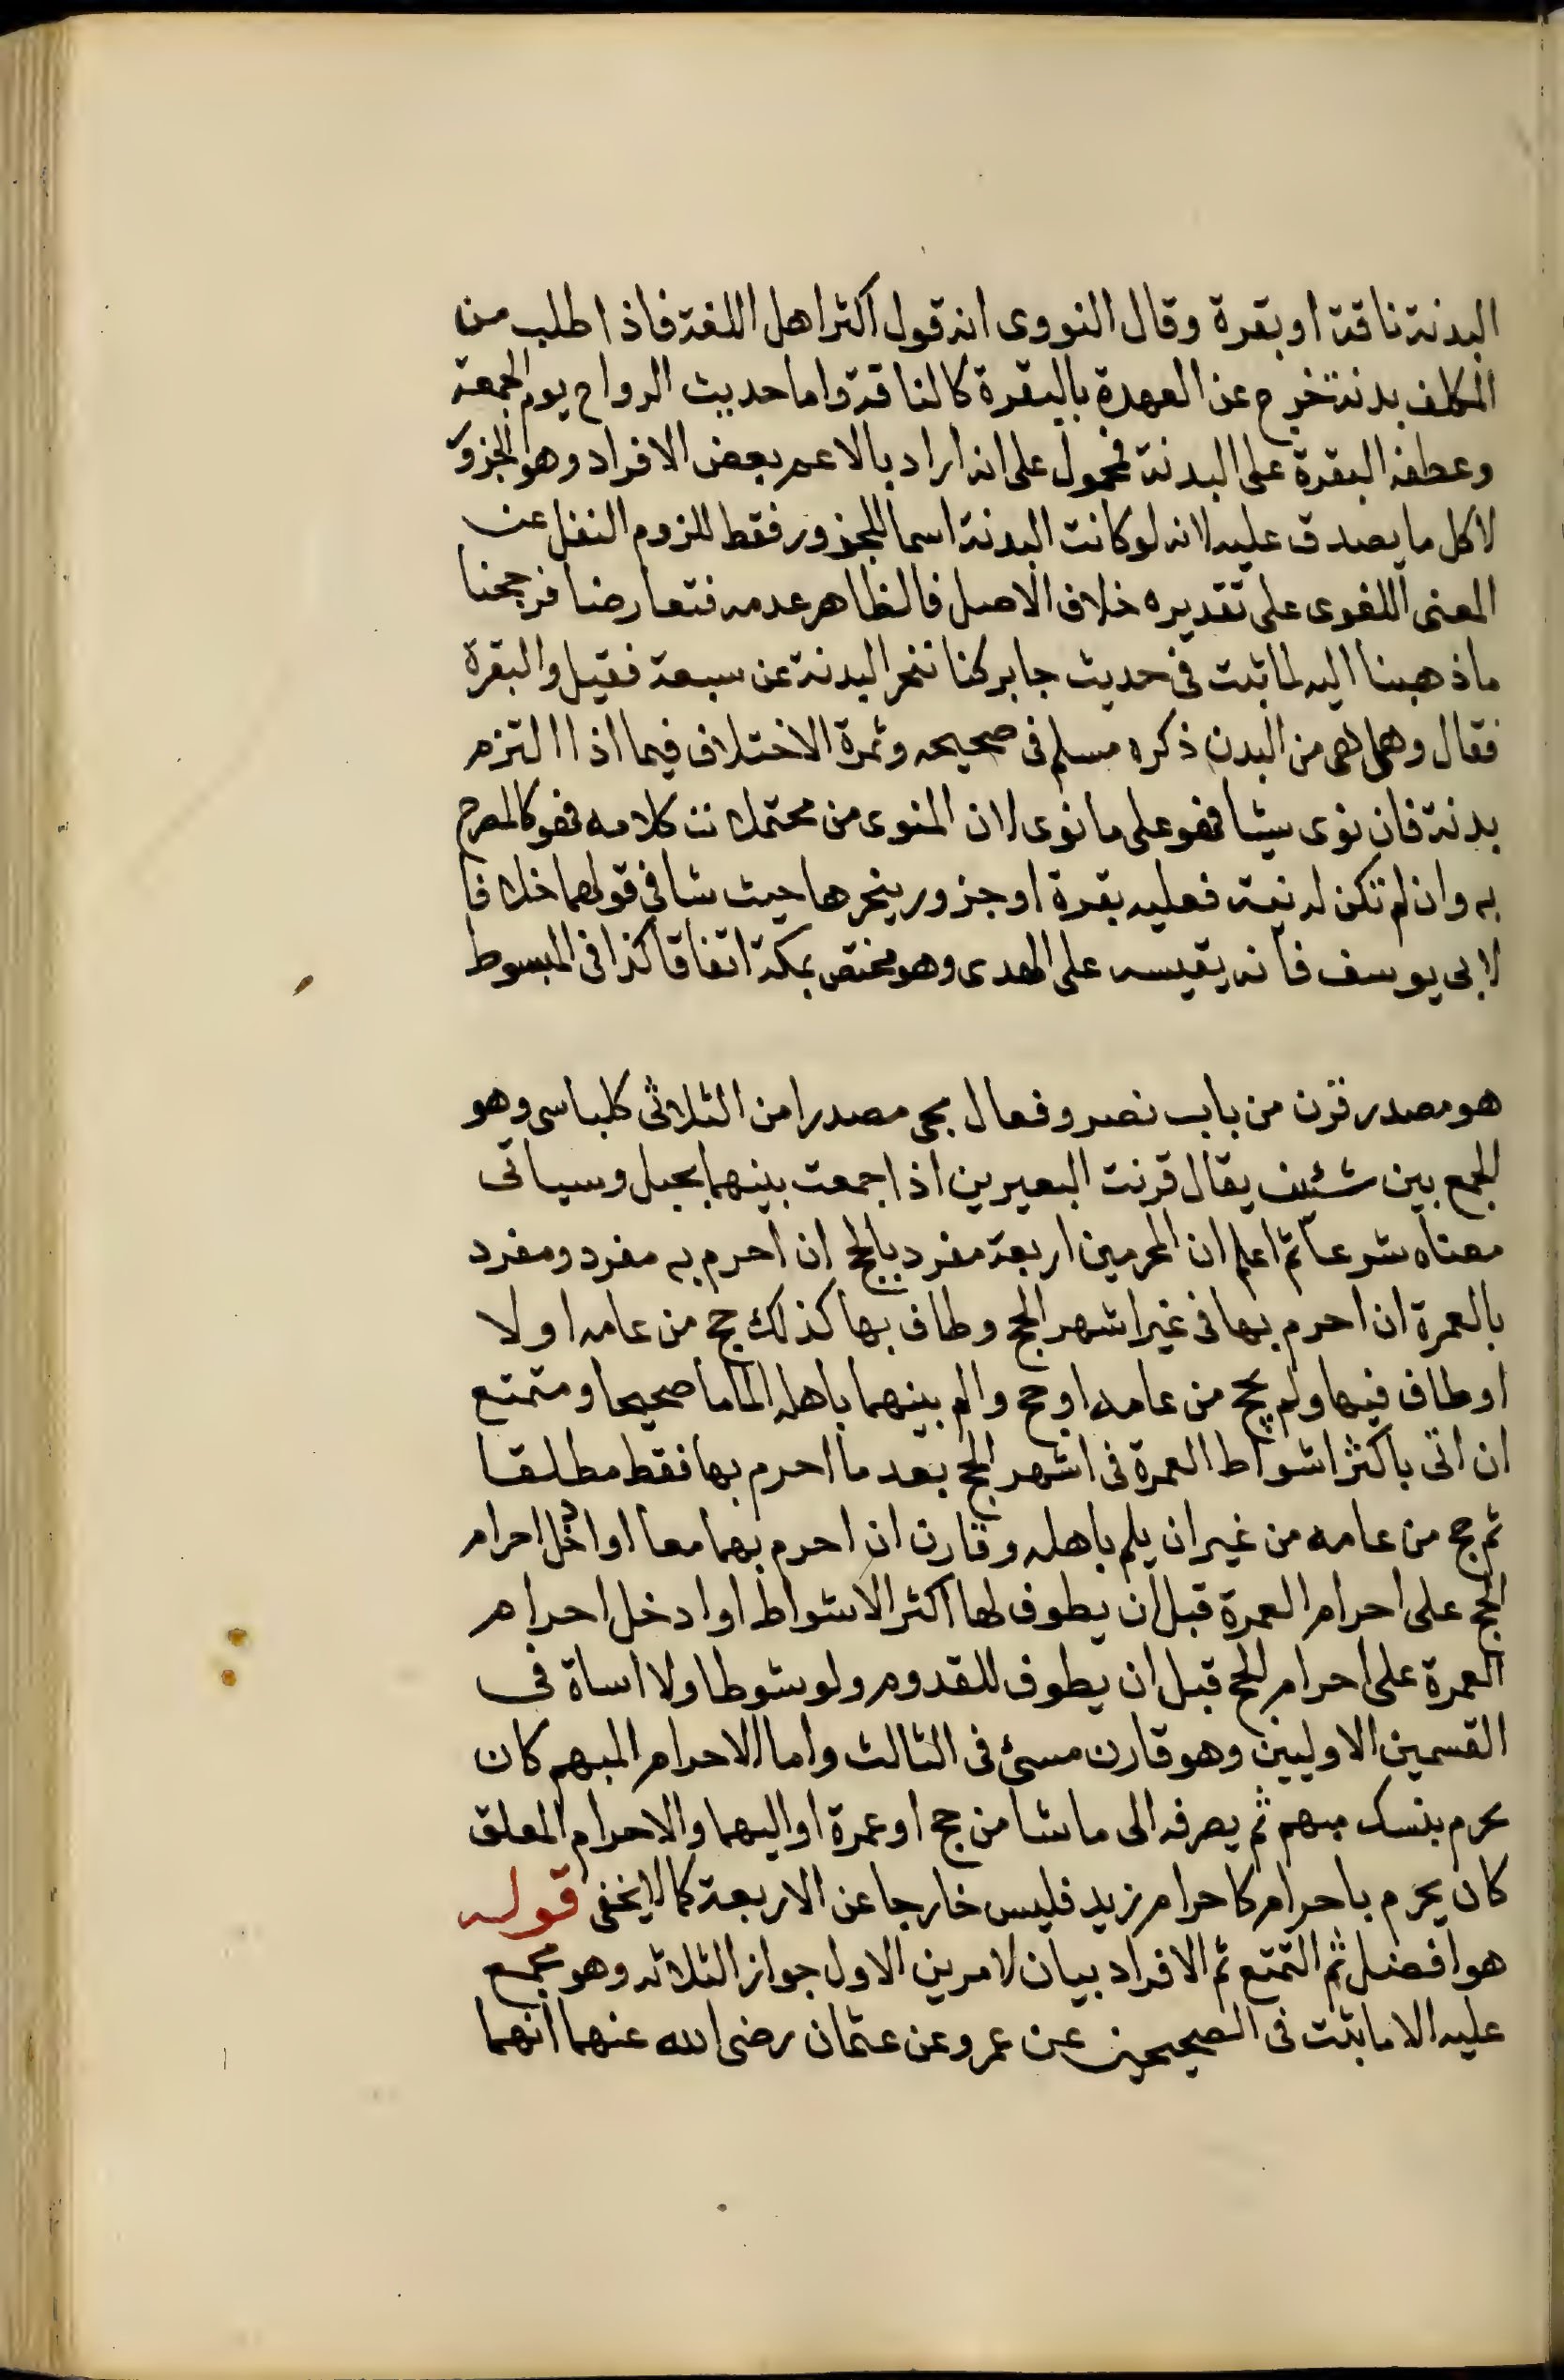 البدنة ناقة او بقرة وقال النووى انه قول اكثر اهل اللغة فاذا طلب من
المكلف بدنة خرج عن العهدة بالبقرة كالناقة واما حديث الرواح يوم الجمعة
وعطفه البقرة على البدنة فمحمول على انه اراد بالاعم بعض الافراد وهو الجزور
لا كل ما يصدق عليه لانه لو كانت البدنة اسما للجزور فقط للزوم النقل عن
المعنى اللغوى على تقديره خلاف الاصل فالظاهر عدمه فتعارضا فرجحنا
ما ذهبنا اليه لما ثبت فى حديث جابر كنا ننحر البدنة عن سبعة فقيل والبقرة
فقال وهل هى من البدن ذكره مسلم فى صحيحه وثمرة الاختلاف فيما اذا التزم
بدنة فان نوى شيئا فهو على ما نوى لان المنوى من محتملات كلامه فهو كالمصرح
به وان لم تكن له نية فعليه بقرة او جزور ينحرها حيث شا فى قولهما خلافا
لابى يوسف فانه يقيسه على الهدى وهو مختص بمكة اتفاقا كذا فى المبسوط
هو مصدر قرن من باب نصر وفعال يجى مصدرا من الثلاثى كلباس وهو
الجمع بين شئين يقال قرنت البعيرين اذا جمعت بينهما بحبل وسياتى
معناه شرعا ثم اعلم ان المحرمين اربعة مفرد بالحج ان احرم به مفرد ومفرد
بالعمرة ان احرم بها فى غير اشهر الحج وطاف بها كذلك حج من عامه او لا
او طاف فيها ولم يحج من عامه او حج والم بينهما باهله الماما صحيحا ومتمتع
ان اتى باكثر اشواط العمرة فى اشهر الحج بعد ما احرم بها فقط مطلقا
ثم حج من عامه من غير ان يلم باهله وقارن ان احرم بهما معا او ادخل احرام
الحج على احرام العمرة قبل ان يطوف لها اكثر الاشواط او ادخل احرام
العمرة على احرام الحج قبل ان يطوف للقدوم ولو شوطا ولا اساة فى
القسمين الاوليين وهو قارن مسئ فى الثالث واما الاحرام المبهم كان
يحرم بنسك مبهم ثم يصرفه الى ما شا من حج او عمرة او اليهما والاحرام المعلق
كان يحرم باحرام كاحرام زيد فليس خارجا عن الاربعة كما لا يخفى قوله
هو افضل ثم التمتع ثم الافراد بيان لامرين الاول جواز الثلاثه وهو مجمع
عليه الا ما ثبت فى الصحيحين عن عمر وعن عثمان رضى الله عنهما انهما